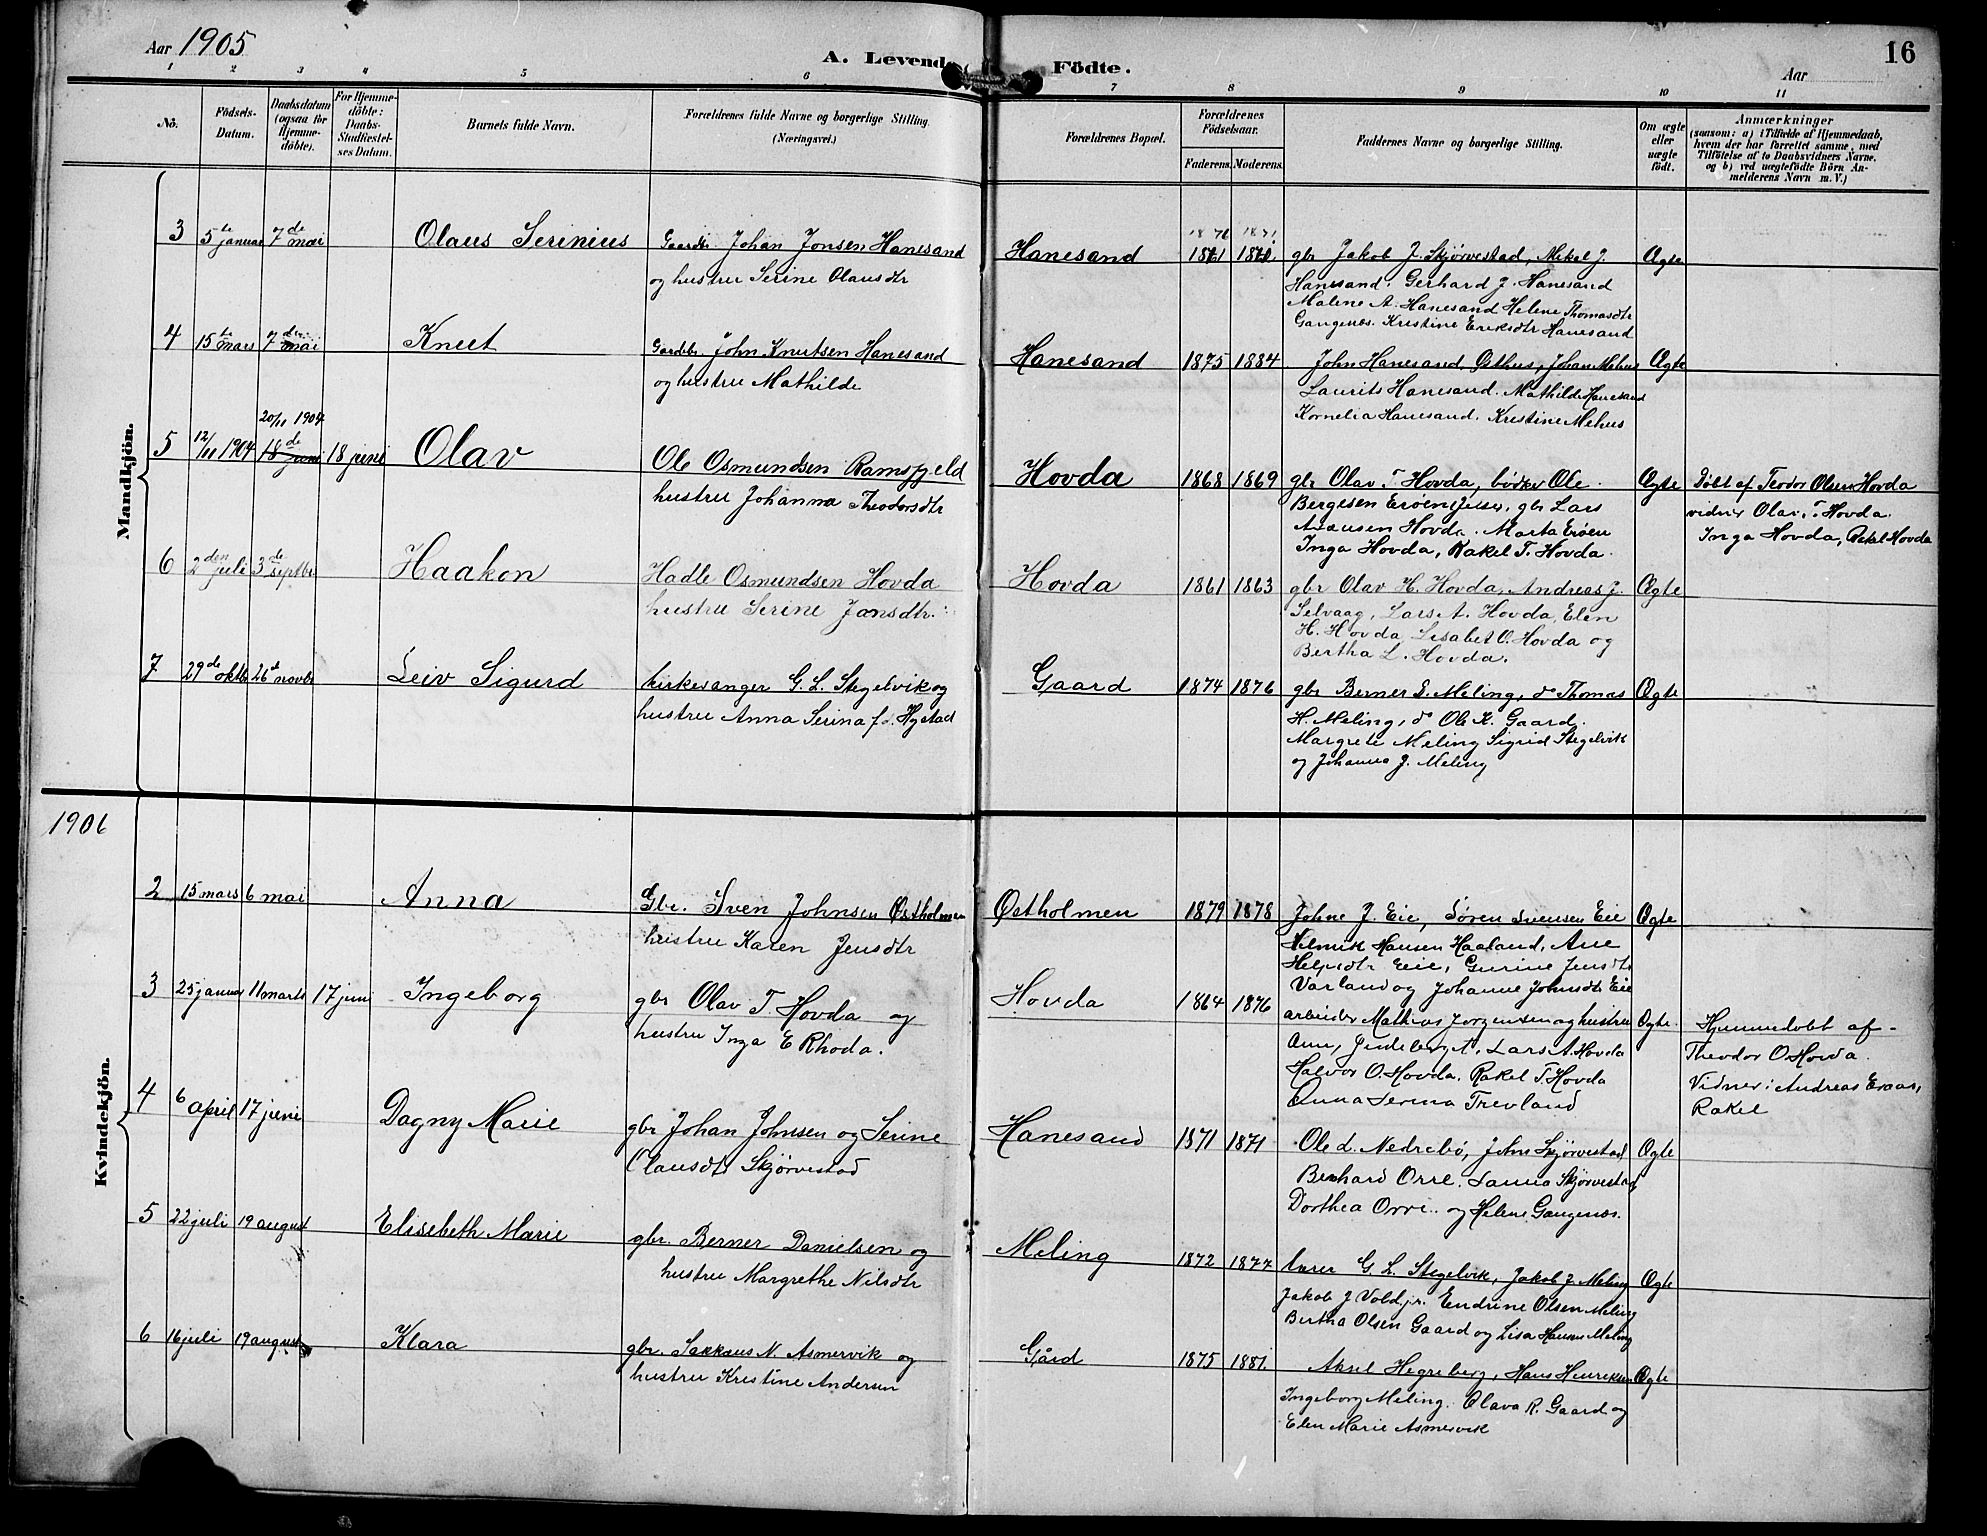 Aar 1905
A. Levende Födte.
16
Aar
1 2 3 4 5 6 7 8 9 10 11
No.
Födsels-Datum.
Daabsdatum (ogsaa for Hjemme-döbte).
For Hjemme-döbte: Daabs-Stadfæstel-ses Datum.
Barnets fulde Navn.
Forældrenes fulde Navne og borgerlige Stilling. (Næringsvei.)
Forældrenes Bopæl.
Forældrenes Födselsaar.
Faderens. Moderens.
Faddernes Navne og borgerlige Stilling.
Om ægte eller uægte födt.
Anmærkninger
(saasom: a) i Tilfælde af Hjemmedaab, hvem der har forrettet samme, med Tilföielse af to Daabsvidners Navne, og b) ved uægtefödte Börn An-melderens Navn m. V.)
Mandkjön.
3 5te januar 7de mai Olaus Serinius Gaardbr. Johan Jonsen Hanesand Hanesand 1871 1871 1861 gbr Jakob J. Skjørvestad, Mikal J. Ægte
og hustru Serine Olausdtr Hanesand, Gerhard J. Hanesand
Malene A. Hanesand Helene Thomasdtr
Gangenæs. Kristine Eriksdtr Hanesand
4 15te mars 7de mai Knut Gardbr. John Knutsen Hanesand Hanesand 1875 1884 John Hanesand, Østhus, Johan Mehus Ægte
og hustru Mathilde Laurits Hanesand. Mathilde Hanesand
Kornelia Hanesand. Kristine Mehus
20/11 1904
5 12/11 1904 18de juni 18 juni Olav Ole Osmundsen Ramsfjeld Hovda 1868 1869 gbr Olav T Hovda, bødker Ole Ægte Døbt af Teodor Olsen Hovda
hustru Johanna Theodorsdtr Bergesen Erøen, gbr Lars vidner Olav T. Hovda
Hovda. Marta Erøen Inga Hovda, Rakel Hovda
Inga Hovda, Rakel T. Hovda.
6 2den juli 3de septbr Haakon Hadle Osmundsen Hovda Hovda 1861 1863 gbr Olav H. Hovda, Andreas J. Ægte
hustru Serine Jansdtr. Selvaag, Lars A. Hovda, Elen
H. Hovda, Lisabet O. Hovda og
Bertha L. Hovda.
7 29de oktbr 26de novbr Leiv Sigurd kirkesanger G. L. Stegelvik og Gaard 1874 1876 gbr Berner D. Meling, do Thomas Ægte
hustru Anna Serina f. Hystad H. Meling, do Ole K. Gaard.
Margrete Meling Sigrid Stegelvik
og Johanna J. Meling
1906
Kvindekjön.
2 15 mars 6 mai Anna Gbr. Sven Johnsen Østholmen Østholmen 1879 1878 Johne J. Eie, Søren Svensen Eie Ægte
hustru Karen Jensdtr Hansen Haaland, Ane
Eie, Gurine Jensdtr
Varland og Johanne Johnsdtr Eie
3 25 januar 11 marts 17 juni Ingeborg gbr Olav T. Hovda og Hovda 1864 1876 arbeider Mathias Jørgensen og hustru Ægte Hjemmedøbt af
hustru Inga E Rhoda. Ane, Lars A. Hovda Theodor O Hovda.
Halvor O. Hovda. Rakel T. Hovda Vidner: Andreas
Anna Serina Trevland Rakel
4 6 april 17 juni Dagny Marie gbr Johan Johnsen og Serine Hanesand 1871 1871 Ole L. Nedrebø, John Skjørvestad Ægte
Olausdtr Skjørvestad Bernhard Orre. Skjørvestad
Dorthea Orre. og Helene Gangenæs.
5 22 juli 19 august Elisebeth Marie gbr. Berner Danielsen og Meling 1872 1877 lærer G. L. Stegelvik, Jakob J. Meling Ægte
hustru Margrethe Nilsdtr Jakob J Vold jr. Endrine Olsen Meling
Bertha Olsen Gaard og Lisa Hansen Meling
6 16 juli 19 august Klara gbr. Sakkæus N. Asmervik og Gård 1875 1881. Aksel Hegreberg, Hans Henriksen Ægte
hustru Kristine Andersen Ingeborg Meling. Olava R. Gaard og
Elen Marie Asmervik